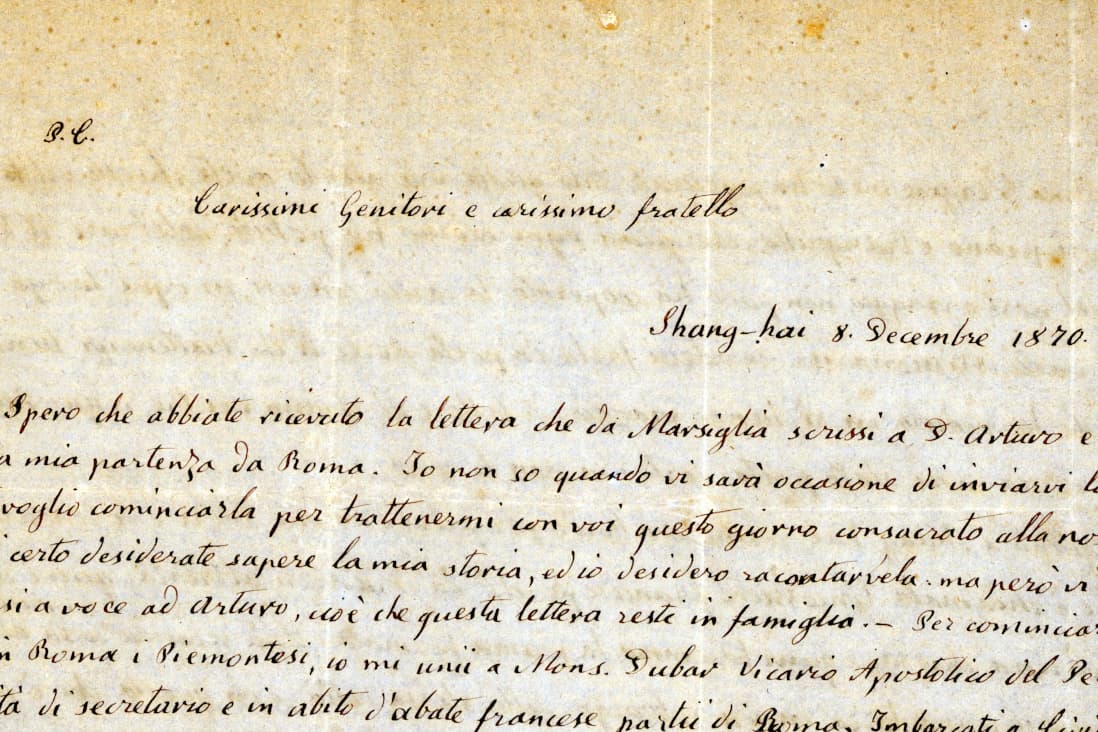 P.C.
Carissimi Genitori e carissimo fratello
Shang-hai 8. Decembre 1870.
Spero che abbiate ricevuto la lettera che da Marsiglia scrissi a D. Arturo e
a mia partenza da Roma. Io non so quando vi sarà occasione di inviarvi la
voglio cominciarla per trattenermi con voi questo giorno consacrato alla no
i certo desiderate sapere la mia storia, ed io desidero racontarvela: ma però vi
si a voce ad Arturo, cioè che questa lettera resti in famiglia. — Per cominciar
n Roma i Piemontesi, io mi unii a Mons. Dubar Vicario Apostolico del Pe
tà di secretario e in abito d'abate francese partii di Roma. Imbarcati a Civi